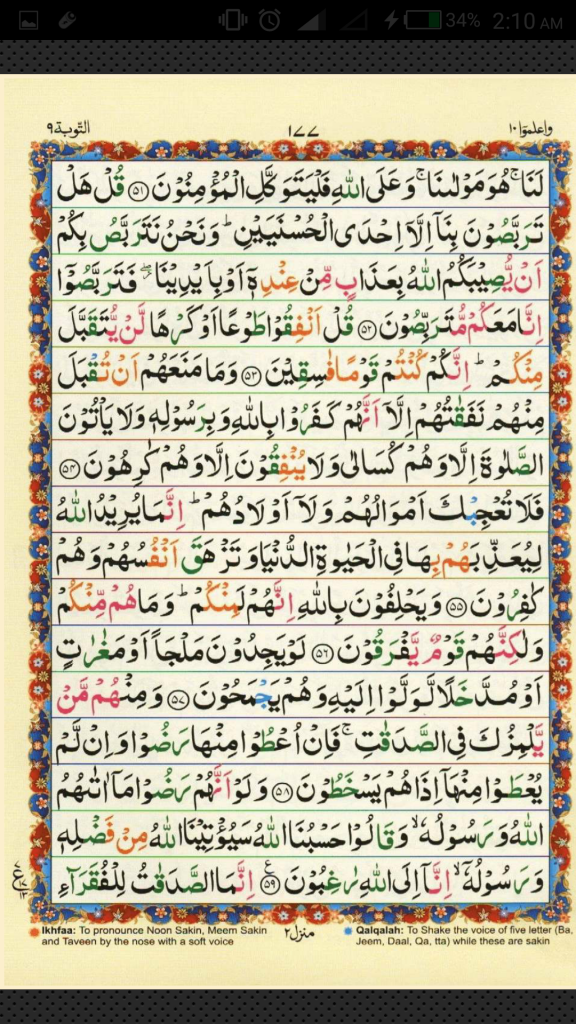 34% 2:10 AM
التوبة ٩ ١٧٧ واعلموا ١٠
لَنَا ۚ هُوَ مَوْلٰىنَا ۚ وَعَلَى اللّٰهِ فَلْيَتَوَكَّلِ الْمُؤْمِنُوْنَ ﴿۵۱﴾ قُلْ هَلْ
تَرَبَّصُوْنَ بِنَاۤ اِلَّاۤ اِحْدَى الْحُسْنَيَيْنِ ؕ وَنَحْنُ نَتَرَبَّصُ بِكُمْ
اَنْ يُّصِيْبَكُمُ اللّٰهُ بِعَذَابٍ مِّنْ عِنْدِهٖۤ اَوْ بِاَيْدِيْنَا ۖ فَتَرَبَّصُوْۤا
اِنَّا مَعَكُمْ مُّتَرَبِّصُوْنَ ﴿۵۲﴾ قُلْ اَنْفِقُوْا طَوْعًا اَوْ كَرْهًا لَّنْ يُّتَقَبَّلَ
مِنْكُمْ ؕ اِنَّكُمْ كُنْتُمْ قَوْمًا فٰسِقِيْنَ ﴿۵۳﴾ وَمَا مَنَعَهُمْ اَنْ تُقْبَلَ
مِنْهُمْ نَفَقٰتُهُمْ اِلَّاۤ اَنَّهُمْ كَفَرُوْا بِاللّٰهِ وَبِرَسُوْلِهٖ وَلَا يَاْتُوْنَ
الصَّلٰوةَ اِلَّا وَهُمْ كُسَالٰى وَلَا يُنْفِقُوْنَ اِلَّا وَهُمْ كٰرِهُوْنَ ﴿۵۴﴾
فَلَا تُعْجِبْكَ اَمْوَالُهُمْ وَلَاۤ اَوْلَادُهُمْ ؕ اِنَّمَا يُرِيْدُ اللّٰهُ
لِيُعَذِّبَهُمْ بِهَا فِى الْحَيٰوةِ الدُّنْيَا وَتَزْهَقَ اَنْفُسُهُمْ وَهُمْ
كٰفِرُوْنَ ﴿۵۵﴾ وَيَحْلِفُوْنَ بِاللّٰهِ اِنَّهُمْ لَمِنْكُمْ ؕ وَمَا هُمْ مِّنْكُمْ
وَلٰكِنَّهُمْ قَوْمٌ يَّفْرَقُوْنَ ﴿۵۶﴾ لَوْ يَجِدُوْنَ مَلْجَاً اَوْ مَغٰرٰتٍ
اَوْ مُدَّخَلًا لَّوَلَّوْا اِلَيْهِ وَهُمْ يَجْمَحُوْنَ ﴿۵۷﴾ وَمِنْهُمْ مَّنْ
يَّلْمِزُكَ فِى الصَّدَقٰتِ ۚ فَاِنْ اُعْطُوْا مِنْهَا رَضُوْا وَاِنْ لَّمْ
يُعْطَوْا مِنْهَاۤ اِذَا هُمْ يَسْخَطُوْنَ ﴿۵۸﴾ وَلَوْ اَنَّهُمْ رَضُوْا مَاۤ اٰتٰىهُمُ
اللّٰهُ وَرَسُوْلُهٗ ۙ وَقَالُوْا حَسْبُنَا اللّٰهُ سَيُؤْتِيْنَا اللّٰهُ مِنْ فَضْلِهٖ
وَرَسُوْلُهٗۤ ۙ اِنَّاۤ اِلَى اللّٰهِ رٰغِبُوْنَ ﴿۵۹﴾ اِنَّمَا الصَّدَقٰتُ لِلْفُقَرَآءِ
Ikhfaa: To pronounce Noon Sakin, Meem Sakin
and Taveen by the nose with a soft voice
منزل ٢
Qalqalah: To Shake the voice of five letter (Ba,
Jeem, Daal, Qa, tta) while these are sakin